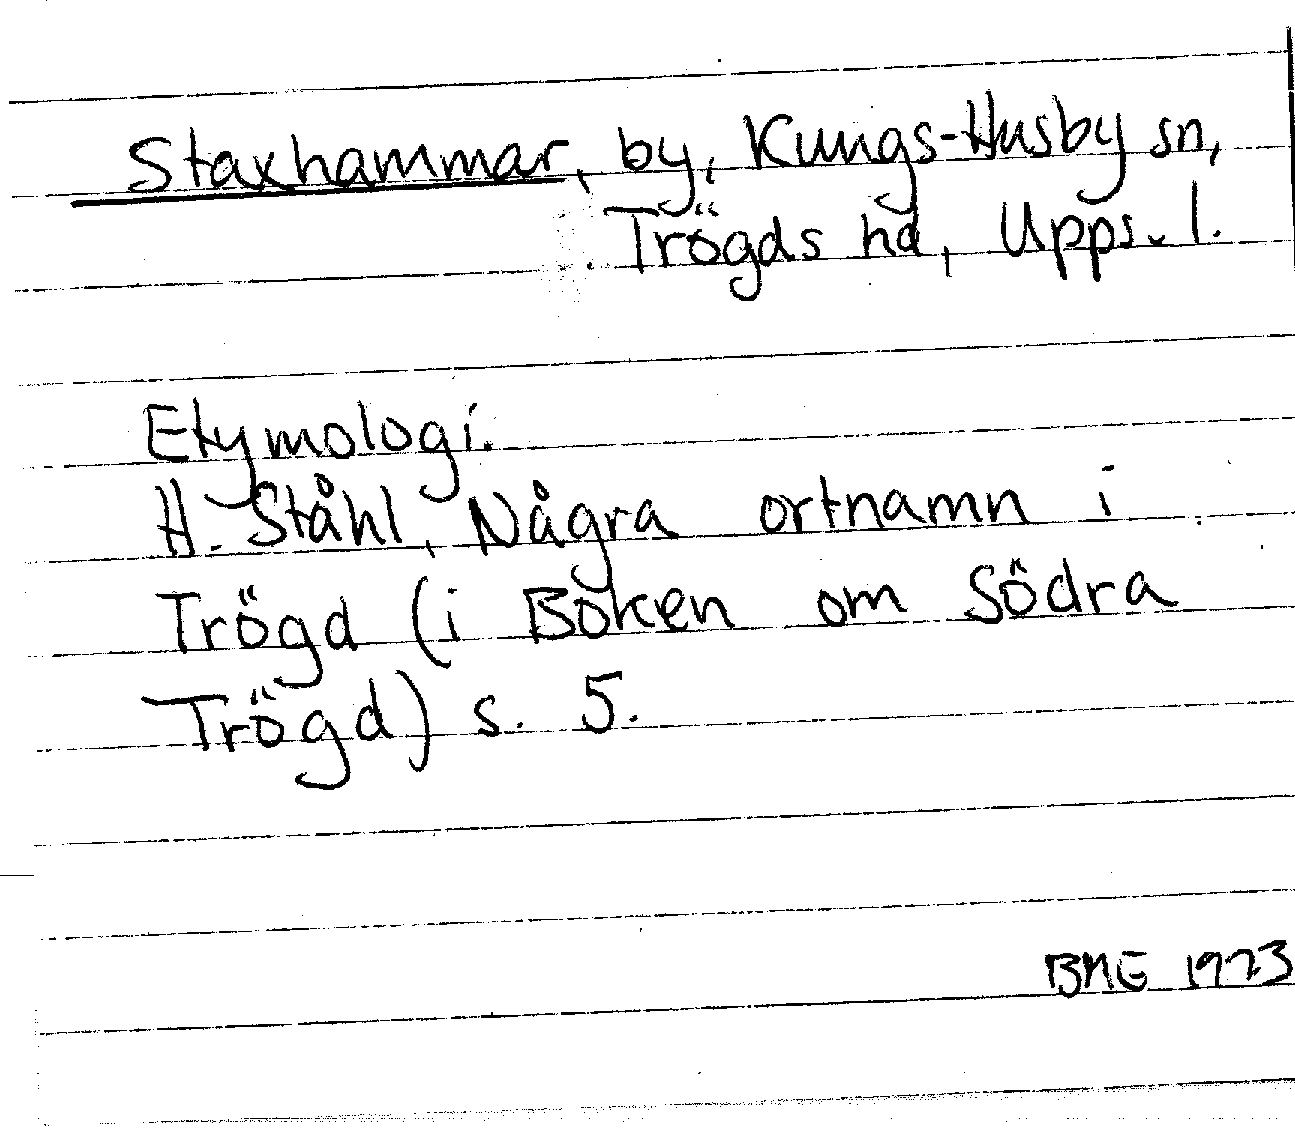 Staxhammar, by, Kungs-Husby sn,
Trögds hd, Upps. l.
Etymologi.
H. Ståhl, Några ortnamn i
Trögd (i Boken om Södra
Trögd) s. 5.
BME 1973